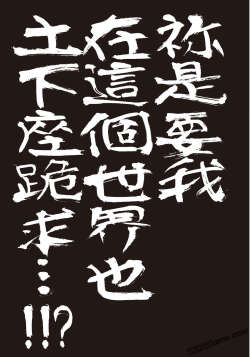 祢是要我
在這個世界也
土下座跪求…!!?